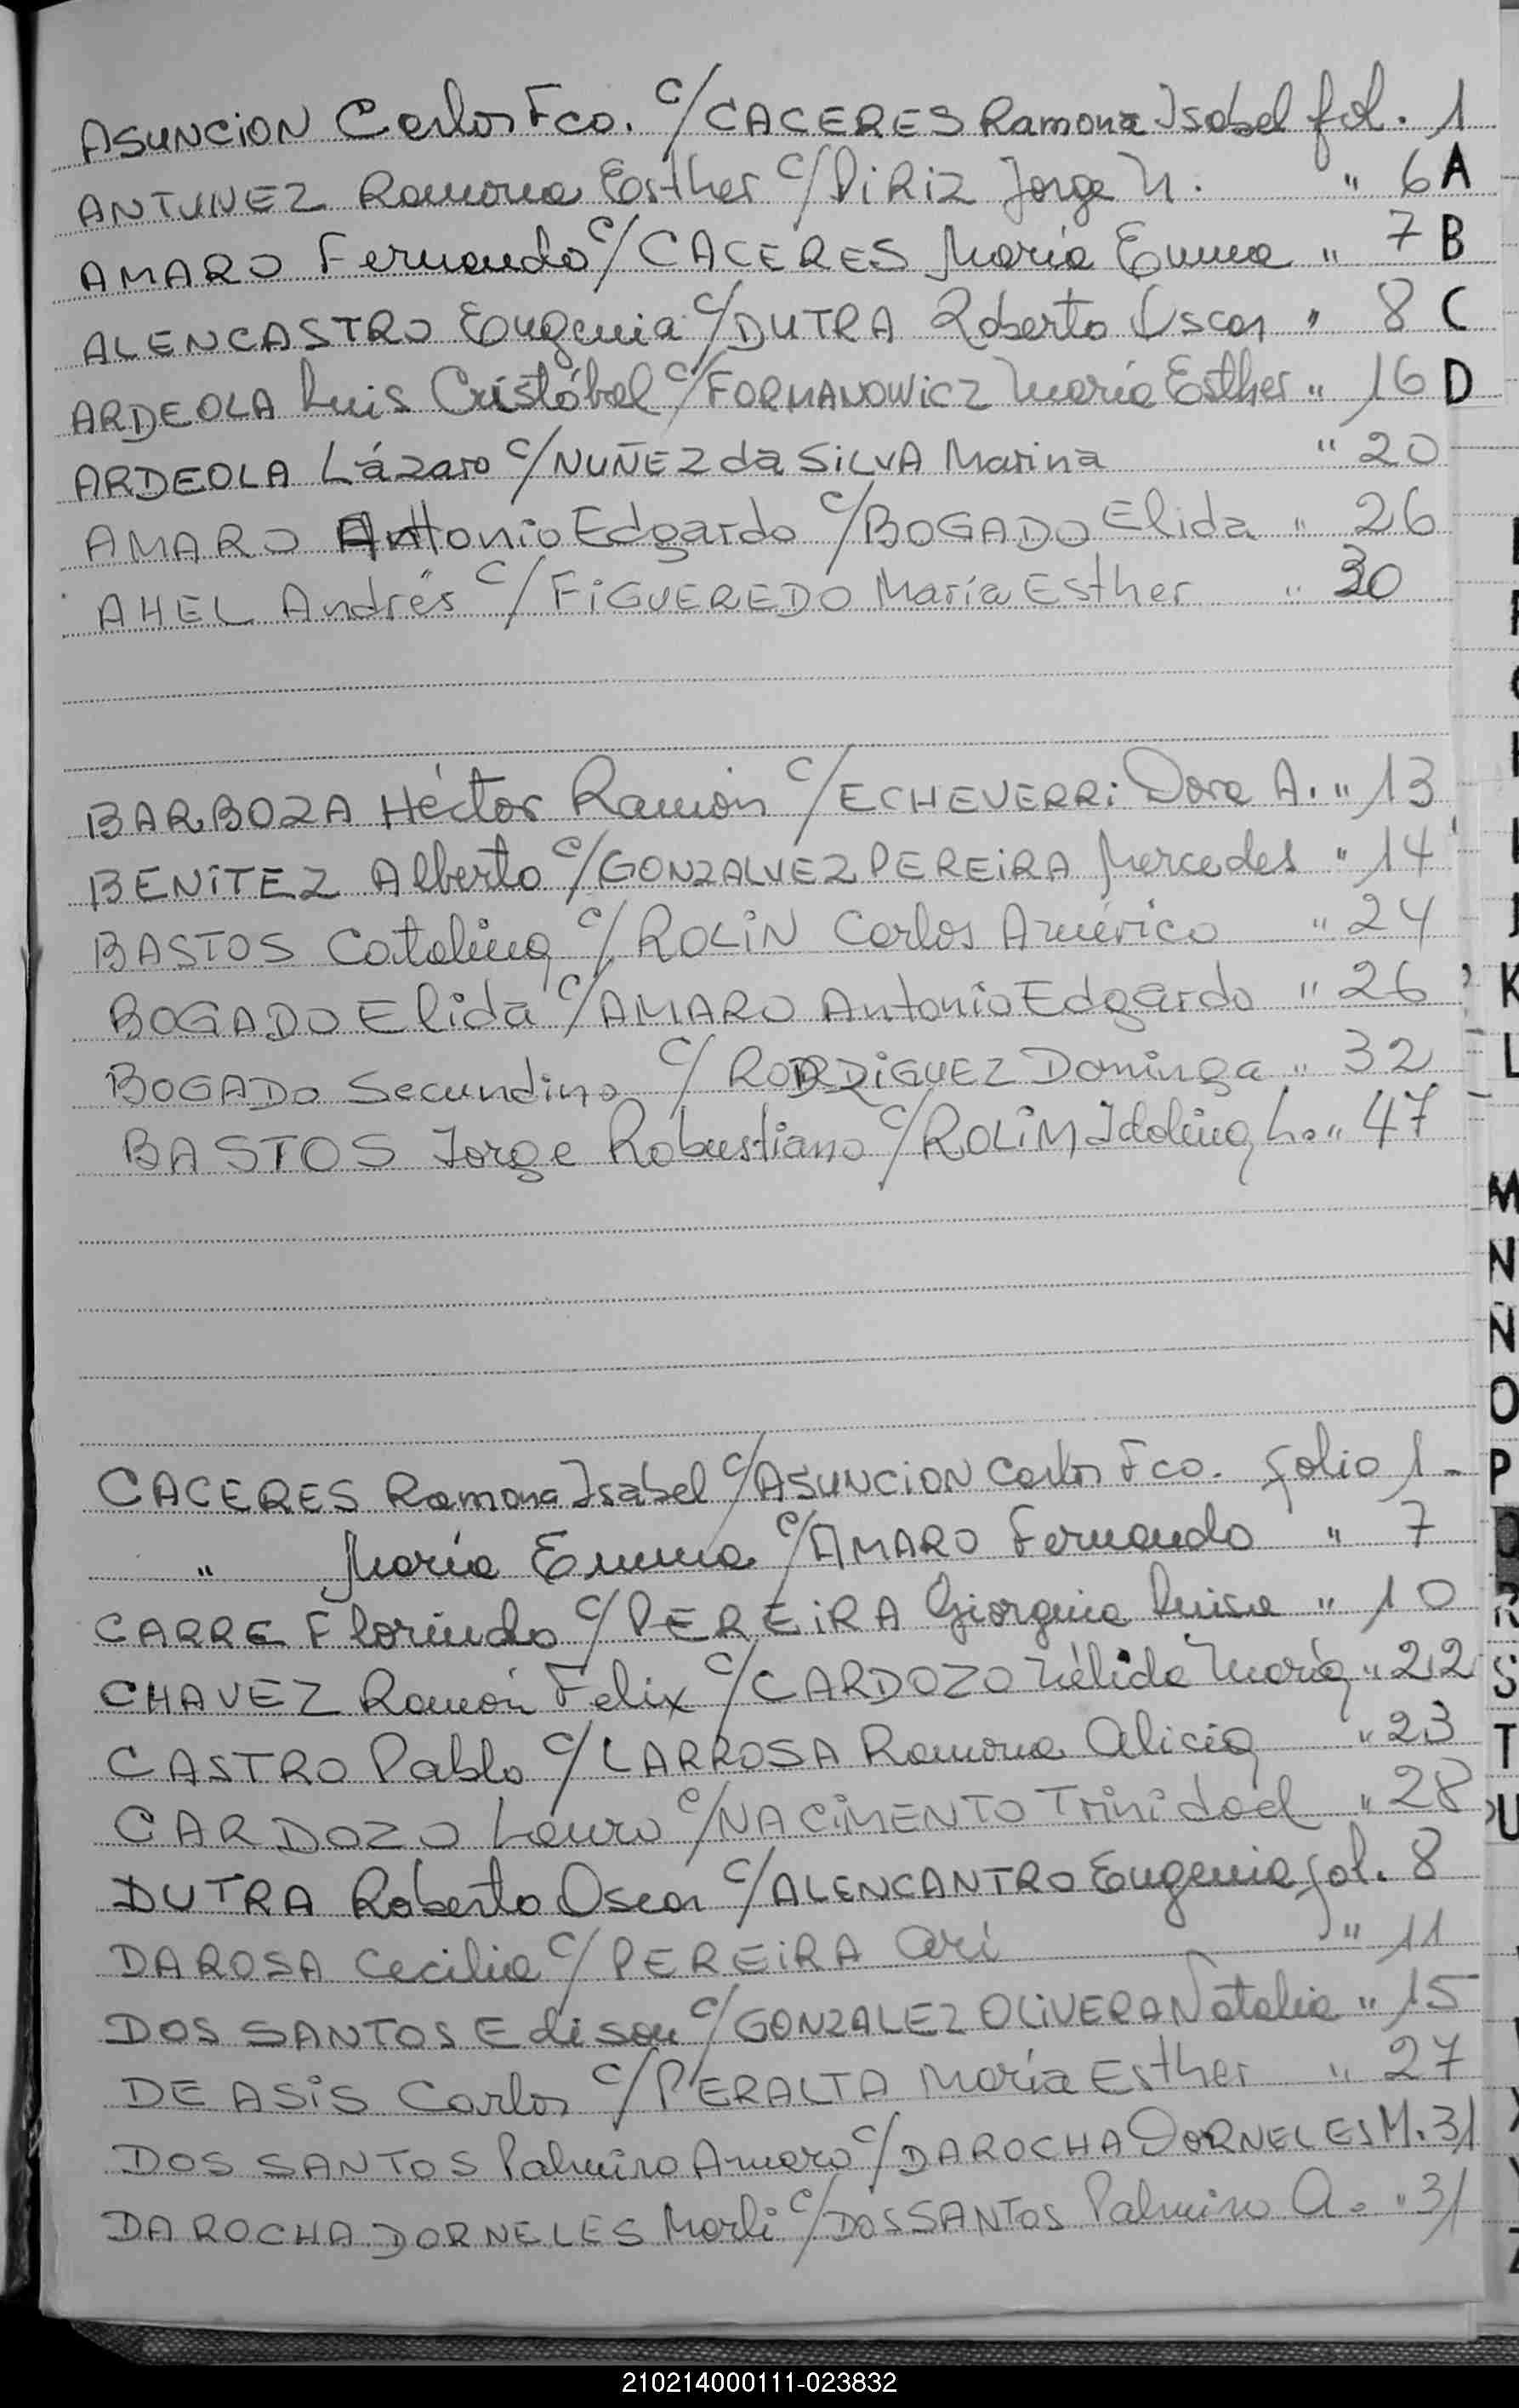 ASUNCION Carlos Fco. c/ CACERES Ramona Isabel fol. 1
ANTUNEZ Ramona Esther c/ PIRIZ Jorge N. " 6 A
AMARO Fernando c/ CACERES María Emma " 7 B
ALENCASTRO Eugenia c/ DUTRA Roberto Oscar " 8 C
ARDEOLA Luis Cristóbal c/ FORMANOWICZ María Esther " 16 D
ARDEOLA Lázaro c/ NUÑEZ da SILVA Marina " 20
AMARO Antonio Edgardo c/ BOGADO Elida " 26
AHEL Andrés c/ FIGUEREDO María Esther " 30
BARBOZA Héctor Ramón c/ ECHEVERRI Dora A. " 13
BENITEZ Alberto c/ GONZALVEZ PEREIRA Mercedes " 14
BASTOS Catalina c/ ROLIN Carlos Américo " 24
BOGADO Elida c/ AMARO Antonio Edgardo " 26
K
BOGADO Secundino c/ RODRIGUEZ Dominga " 32
L
BASTOS Jorge Robustiano c/ ROLIM Idolina L. " 47
M
N
Ñ
O
CACERES Ramona Isabel c/ ASUNCION Carlos Fco. folio 1-
P
" María Emma c/ AMARO Fernando " 7
CARRE Florindo c/ PEREIRA Giorgina Luisa " 10
R
CHAVEZ Ramón Felix c/ CARDOZO Nélida María " 22
S
CASTRO Pablo c/ LARROSA Ramona Alicia " 23
T
CARDOZO Lauro c/ NACIMENTO Trinidad " 28
U
DUTRA Roberto Oscar c/ ALENCANTRO Eugenia fol. 8
DA ROSA Cecilia c/ PEREIRA Ari " 11
DOS SANTOS Edison c/ GONZALEZ OLIVERA Natalia " 15
DE ASIS Carlos c/ PERALTA María Esther " 27
DOS SANTOS Palmiro Amaro c/ DA ROCHA DORNELES M. 31
DA ROCHA DORNELES Marli c/ DOS SANTOS Palmiro A. " 31
210214000111-023832